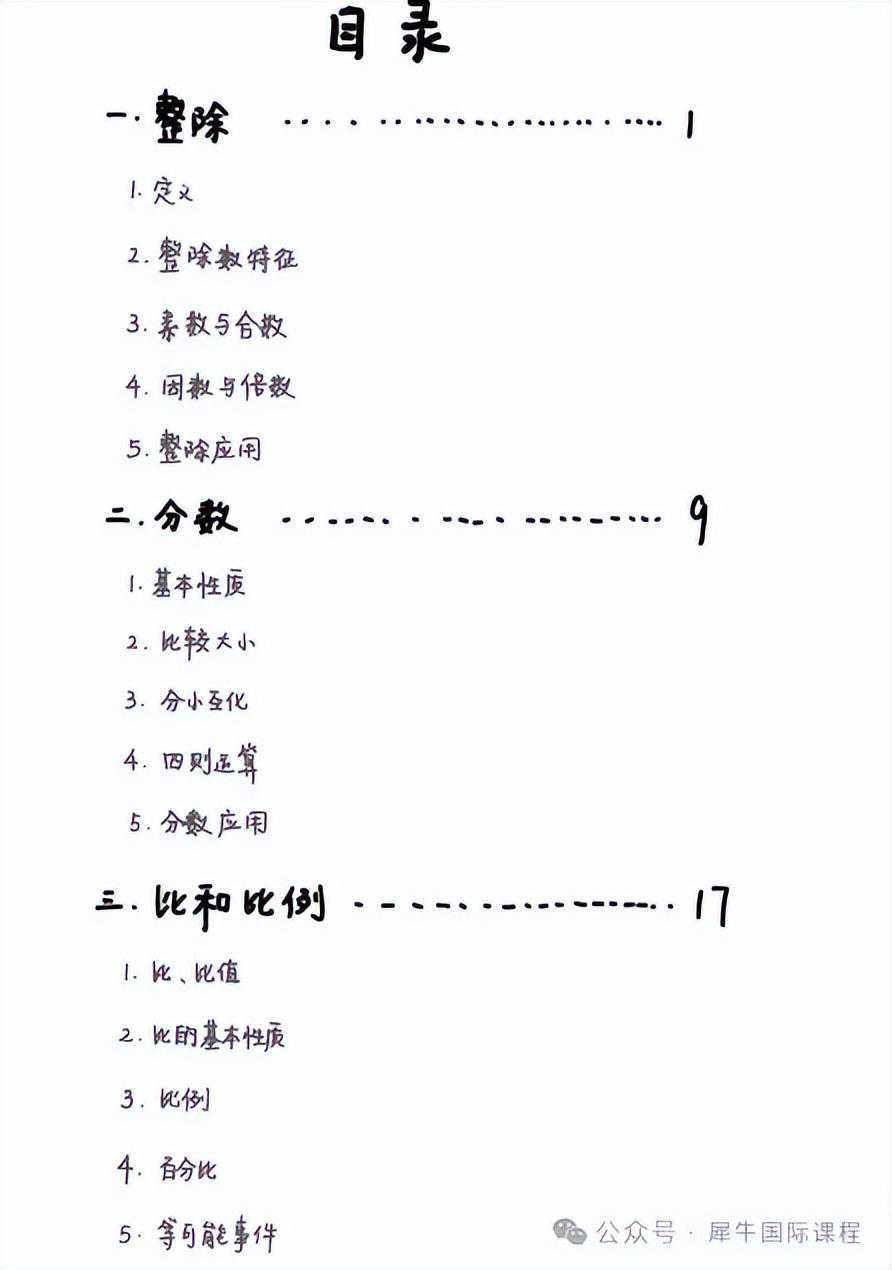 目录
一. 整除 .................... 1
1. 定义
2. 整除数特征
3. 素数与合数
4. 因数与倍数
5. 整除应用
二. 分数 .................... 9
1. 基本性质
2. 比较大小
3. 分小互化
4. 四则运算
5. 分数应用
三. 比和比例 .................... 17
1. 比、比值
2. 比的基本性质
3. 比例
4. 百分比
5. 等可能事件
公众号 · 犀牛国际课程